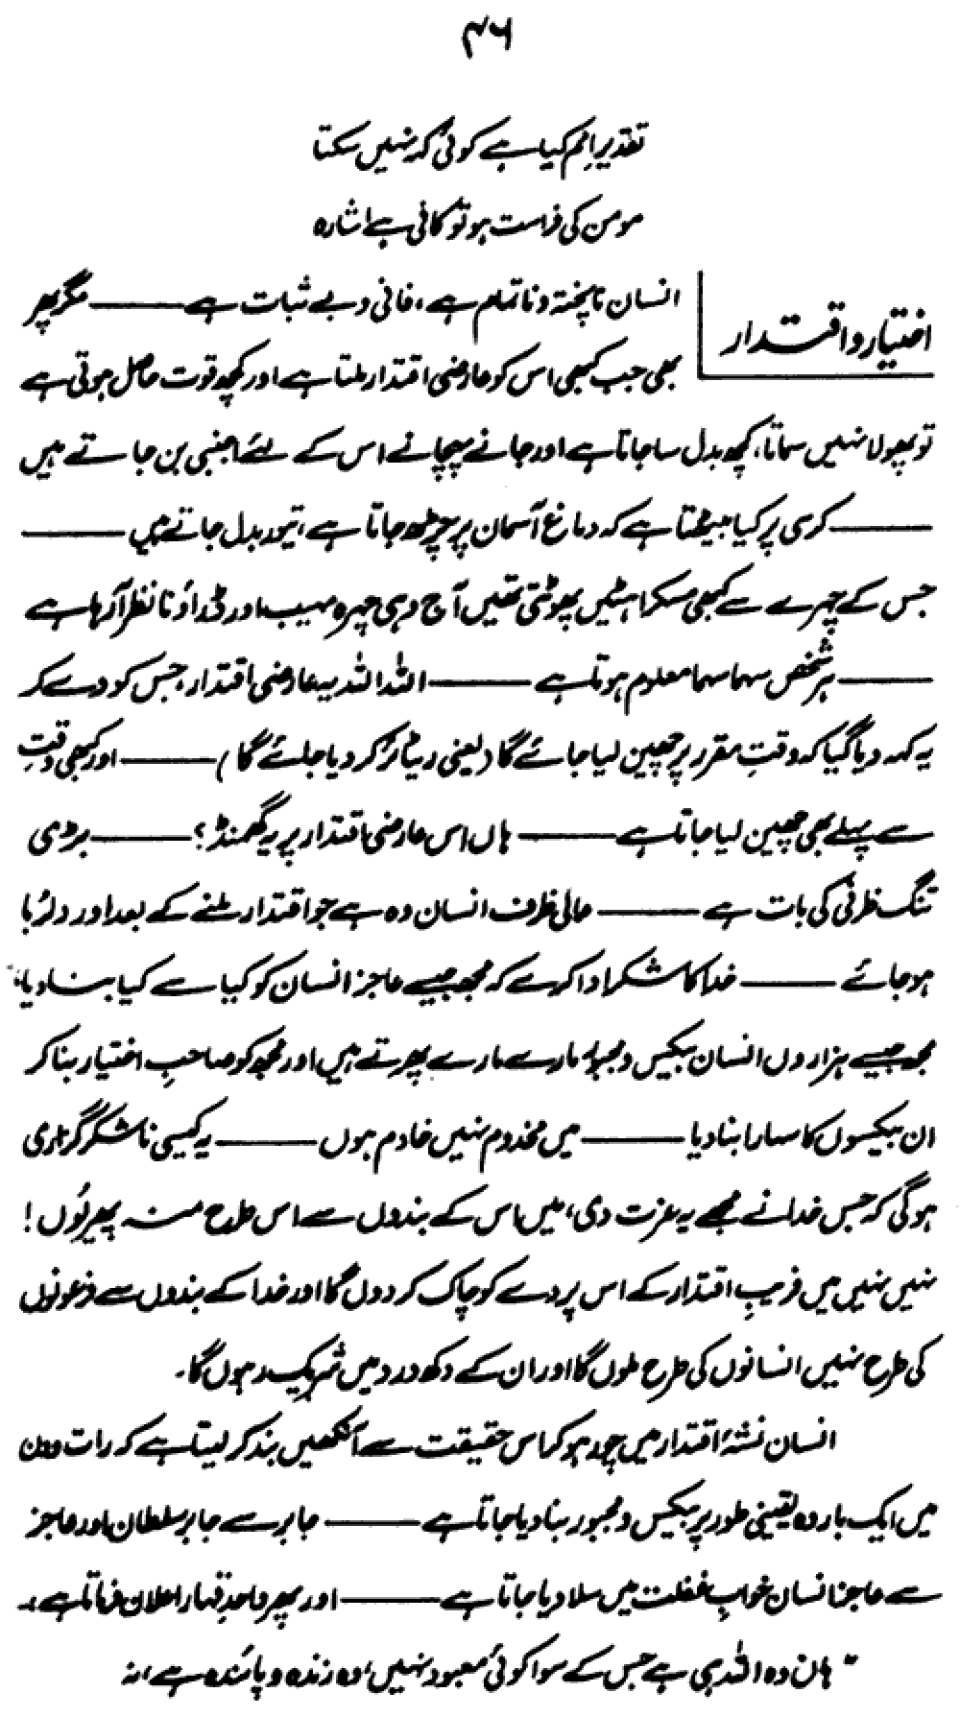 ۴۶
تقدیرِ امم کیا ہے کوئی کہہ نہیں سکتا
مومن کی فراست ہو تو کافی ہے اشارہ
اختیار و اقتدار
انسان ناپختہ و ناتمام ہے، فانی و بے ثبات ہے ——— مگر پھر
بھی جب کبھی اس کو عارضی اقتدار ملتا ہے اور کچھ قوت حاصل ہوتی ہے
تو پھولا نہیں سماتا، کچھ بدل سا جاتا ہے اور جانے پہچانے اس کے لئے اجنبی بن جاتے ہیں
——— کرسی پر کیا بیٹھتا ہے کہ دماغ آسمان پر چڑھ جاتا ہے، تیور بدل جاتے ہیں ———
جس کے چہرے سے کبھی مسکراہٹیں پھوٹتی تھیں آج وہی چہرہ مہیب اور ڈراؤنا نظر آرہا ہے
——— ہر شخص سہما سہما معلوم ہوتا ہے ——— اللہ اللہ یہ عارضی اقتدار، جس کو دے کر
یہ کہہ دیا گیا کہ وقتِ مقرر پر چھین لیا جائے گا (یعنی ریٹائر کر دیا جائے گا) ——— اور کبھی وقت
سے پہلے بھی چھین لیا جاتا ہے ——— ہاں اس عارضی اقتدار پر یہ گھمنڈ؟ ——— بڑی
تنگ ظرفی کی بات ہے ——— عالی ظرف انسان وہ ہے جو اقتدار ملنے کے بعد اور دلربا
ہو جائے ——— خدا کا شکر ادا کرے کہ مجھ جیسے عاجز انسان کو کیا سے کیا بنا دیا،
مجھ جیسے ہزاروں انسان بیکس و مجبور مارے مارے پھرتے ہیں اور مجھ کو صاحبِ اختیار بنا کر
ان بیکسوں کا سہارا بنا دیا ——— میں مخدوم نہیں خادم ہوں ——— یہ کیسی ناشکرگزاری
ہوگی کہ جس خدا نے مجھے یہ عزت دی، میں اس کے بندوں سے اس طرح منہ پھیرلُوں!
نہیں نہیں میں فریبِ اقتدار کے اس پردے کو چاک کر دوں گا اور خدا کے بندوں سے فرعونوں
کی طرح نہیں انسانوں کی طرح ملوں گا اور ان کے دکھ درد میں شریک رہوں گا۔
انسان نشۂ اقتدار میں چور ہو کر اس حقیقت سے آنکھیں بند کر لیتا ہے کہ رات دن
میں ایک بار وہ یقینی طور پر بیکس و مجبور بنا دیا جاتا ہے ——— جابر سے جابر سلطان اور عاجز
سے عاجز انسان خوابِ غفلت میں سلا دیا جاتا ہے ——— اور پھر واحدِ قہار اعلان فرماتا ہے،
"ہاں وہ اللہ ہی ہے جس کے سوا کوئی معبود نہیں، وہ زندہ و پائندہ ہے، نہ